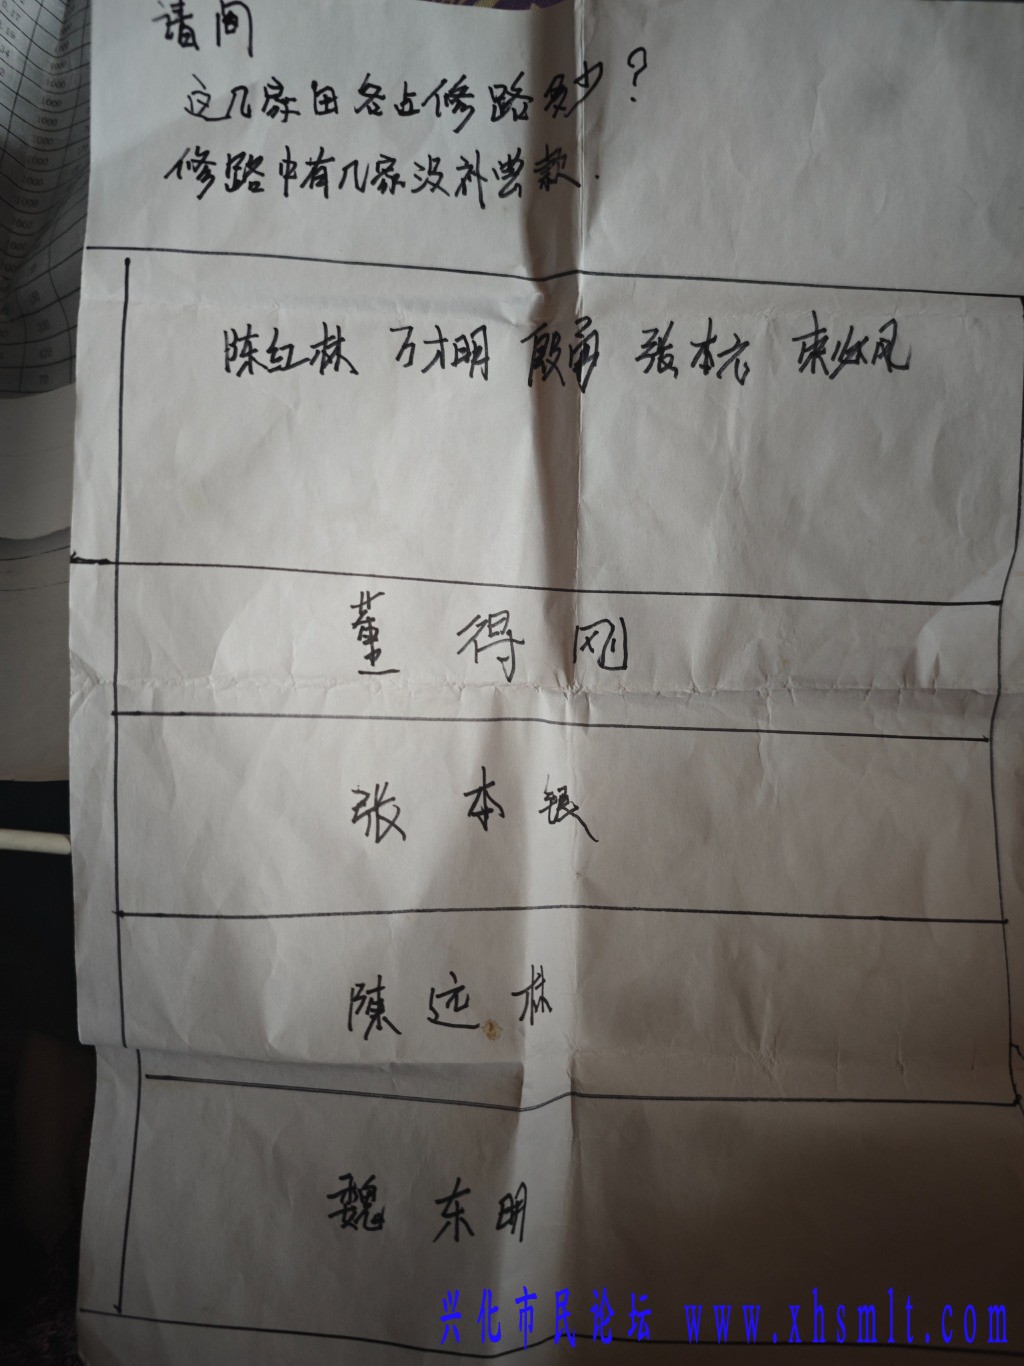 请问
这几家田各占修路多少?
修路中有几家没补尝款.
陈红林 万才明 殷勇 张本元 束
董得刚
张本银
陳远林
魏东明
兴化市民论坛 www.xhsmlt.com